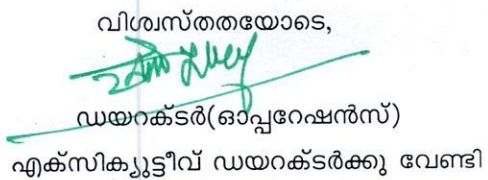 വിശ്വസ്തതയോടെ,
ഡയറക്ടർ(ഓപ്പറേഷൻസ്)
എക്സിക്യുട്ടീവ് ഡയറക്ടർക്കു വേണ്ടി